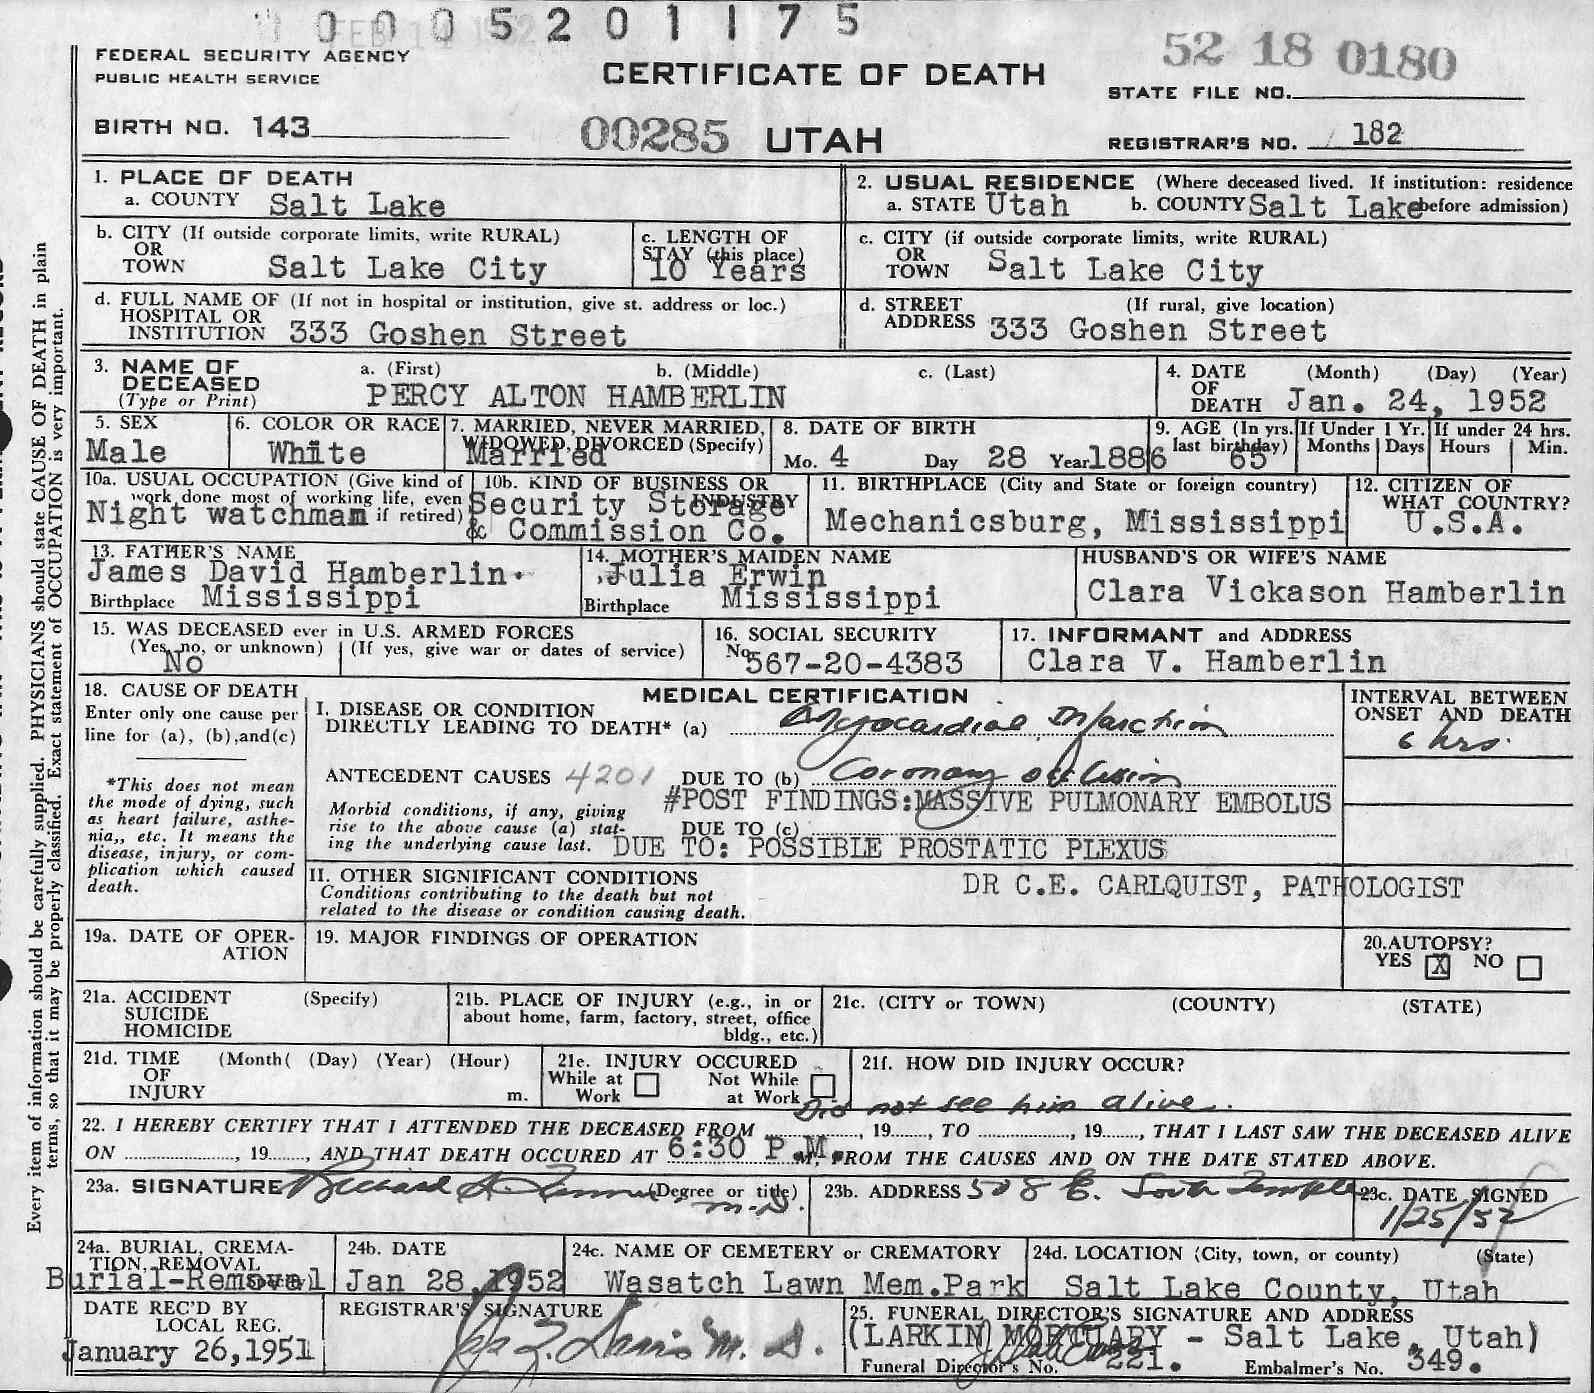 0 0 0 5 2 0 1 1 7 5
FEDERAL SECURITY AGENCY
PUBLIC HEALTH SERVICE
CERTIFICATE OF DEATH
52 18 0180
STATE FILE NO.
BIRTH NO. 143
00285 UTAH
REGISTRAR'S NO. 182
1. PLACE OF DEATH
a. COUNTY Salt Lake
2. USUAL RESIDENCE (Where deceased lived. If institution: residence
a. STATE Utah b. COUNTY Salt Lake before admission)
b. CITY (If outside corporate limits, write RURAL)
OR
TOWN Salt Lake City
c. LENGTH OF
STAY (this place)
10 Years
c. CITY (if outside corporate limits, write RURAL)
OR
TOWN Salt Lake City
d. FULL NAME OF (If not in hospital or institution, give st. address or loc.)
HOSPITAL OR
INSTITUTION 333 Goshen Street
d. STREET (If rural, give location)
ADDRESS 333 Goshen Street
3. NAME OF a. (First) b. (Middle) c. (Last)
DECEASED
(Type or Print) PERCY ALTON HAMBERLIN
4. DATE (Month) (Day) (Year)
OF
DEATH Jan. 24, 1952
5. SEX
Male
6. COLOR OR RACE
White
7. MARRIED, NEVER MARRIED,
WIDOWED, DIVORCED (Specify)
Married
8. DATE OF BIRTH
Mo. 4 Day 28 Year 1886
9. AGE (In yrs. last birthday)
65
If Under 1 Yr.
Months Days
If under 24 hrs.
Hours Min.
10a. USUAL OCCUPATION (Give kind of
work done most of working life, even
if retired)
Night watchman
10b. KIND OF BUSINESS OR
INDUSTRY
Security Storage
& Commission Co.
11. BIRTHPLACE (City and State or foreign country)
Mechanicsburg, Mississippi
12. CITIZEN OF
WHAT COUNTRY?
U.S.A.
13. FATHER'S NAME
James David Hamberlin
Birthplace Mississippi
14. MOTHER'S MAIDEN NAME
Julia Erwin
Birthplace Mississippi
HUSBAND'S OR WIFE'S NAME
Clara Vickason Hamberlin
15. WAS DECEASED ever in U.S. ARMED FORCES
(Yes, no, or unknown) (If yes, give war or dates of service)
No
16. SOCIAL SECURITY
No. 567-20-4383
17. INFORMANT and ADDRESS
Clara V. Hamberlin
18. CAUSE OF DEATH
Enter only one cause per
line for (a), (b), and (c)
*This does not mean
the mode of dying, such
as heart failure, asthe-
nia,, etc. It means the
disease, injury, or com-
plication which caused
death.
MEDICAL CERTIFICATION
I. DISEASE OR CONDITION
DIRECTLY LEADING TO DEATH* (a) Myocardial Infarction
INTERVAL BETWEEN
ONSET AND DEATH
6 hrs.
ANTECEDENT CAUSES 4201 DUE TO (b) Coronary occlusion
#POST FINDINGS: MASSIVE PULMONARY EMBOLUS
Morbid conditions, if any, giving
rise to the above cause (a) stat-
ing the underlying cause last.
DUE TO (c)
DUE TO: POSSIBLE PROSTATIC PLEXUS
II. OTHER SIGNIFICANT CONDITIONS
Conditions contributing to the death but not
related to the disease or condition causing death.
DR C.E. CARLQUIST, PATHOLOGIST
19a. DATE OF OPER-
ATION
19. MAJOR FINDINGS OF OPERATION
20. AUTOPSY?
YES X NO
21a. ACCIDENT (Specify)
SUICIDE
HOMICIDE
21b. PLACE OF INJURY (e.g., in or
about home, farm, factory, street, office
bldg., etc.)
21c. (CITY or TOWN) (COUNTY) (STATE)
21d. TIME (Month( (Day) (Year) (Hour)
OF
INJURY m.
21e. INJURY OCCURED
While at Work
Not While at Work
21f. HOW DID INJURY OCCUR?
Did not see him alive.
22. I HEREBY CERTIFY THAT I ATTENDED THE DECEASED FROM , 19 , TO , 19 , THAT I LAST SAW THE DECEASED ALIVE
ON , 19 , AND THAT DEATH OCCURED AT 6:30 P.M. M, FROM THE CAUSES AND ON THE DATE STATED ABOVE.
23a. SIGNATURE Richard (Degree or title)
M.D.
23b. ADDRESS 508 E. South Temple
23c. DATE SIGNED
1/25/52
24a. BURIAL, CREMA-
TION, REMOVAL
Burial-Removal
24b. DATE
Jan 28, 1952
24c. NAME OF CEMETERY or CREMATORY
Wasatch Lawn Mem.Park
24d. LOCATION (City, town, or county) (State)
Salt Lake County, Utah
DATE REC'D BY
LOCAL REG.
January 26,1951
REGISTRAR'S SIGNATURE
M. D.
25. FUNERAL DIRECTOR'S SIGNATURE AND ADDRESS
(LARKIN MORTUARY - Salt Lake, Utah)
Funeral Director's No. 221. Embalmer's No. 349.
Every item of information should be carefully supplied. PHYSICIANS should state CAUSE OF DEATH in plain
terms, so that it may be properly classified. Exact statement of OCCUPATION is very important.